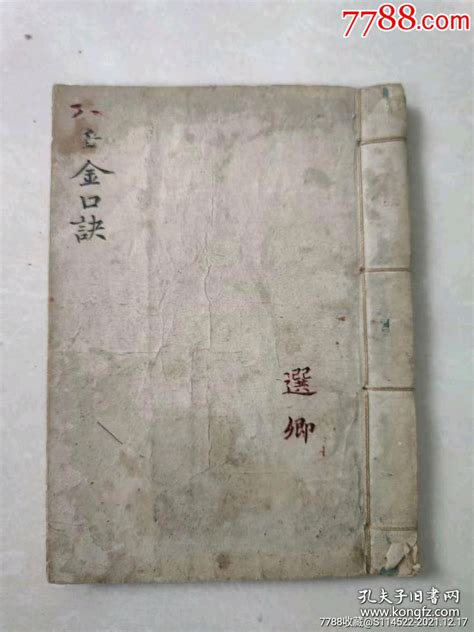 7788.com
六壬金口訣
選卿
孔夫子旧书网
7788收藏@S114522-2021.12.17